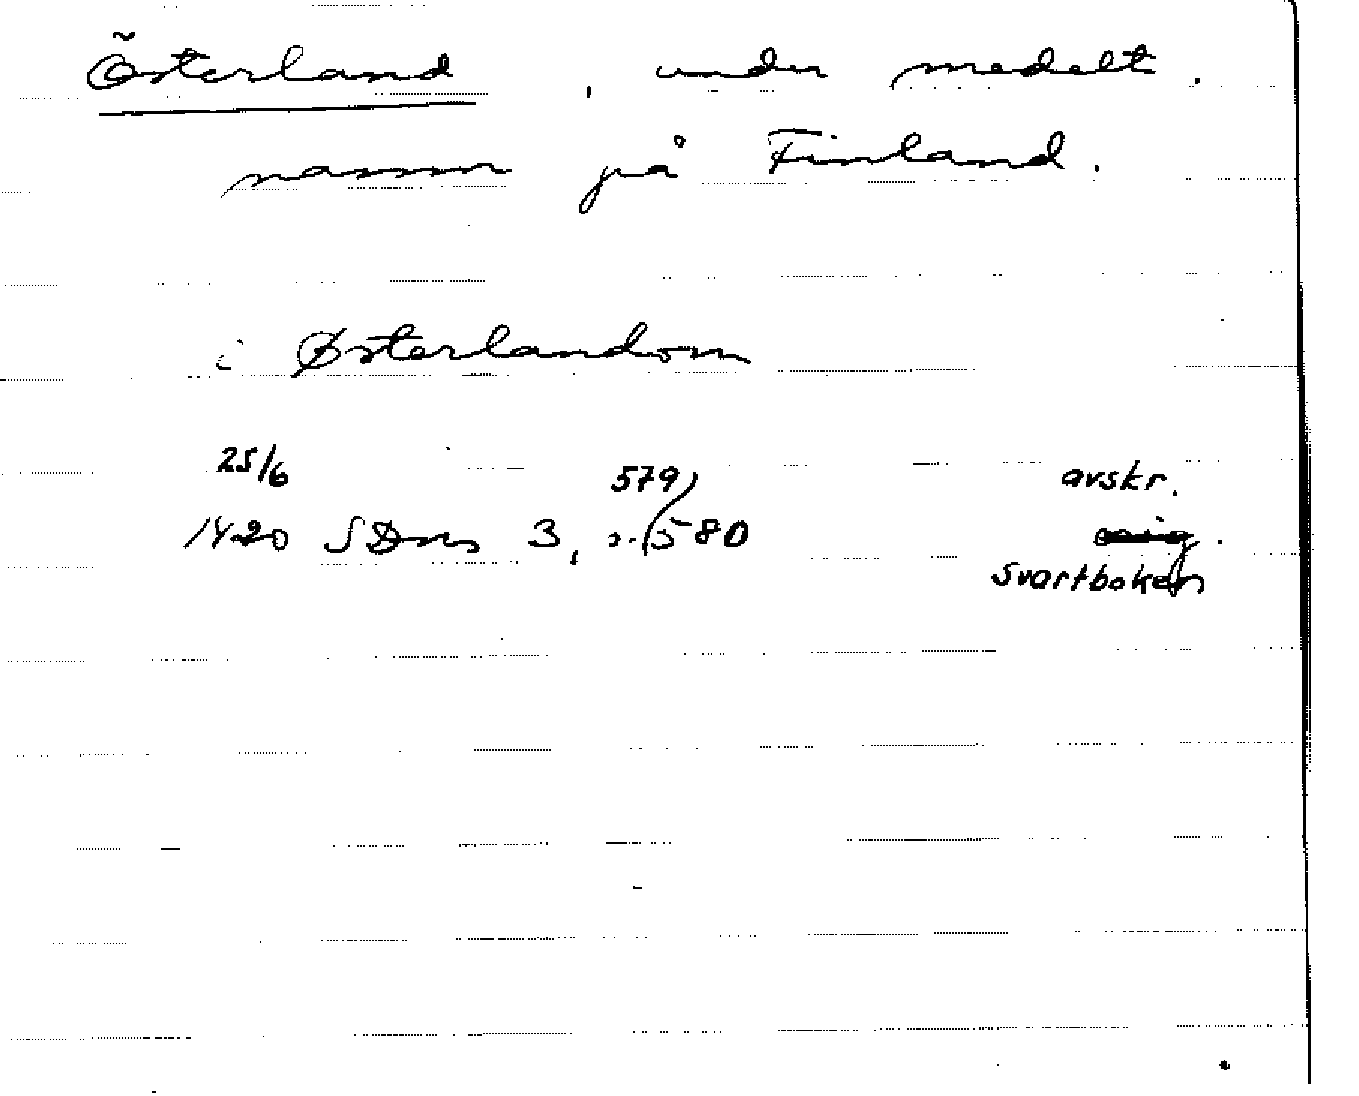 Österland, under medelt.
namn på Finland.
i Østerlandom
25/6 579/ avskr.
1420 SDns 3, s. 580
Svartboken